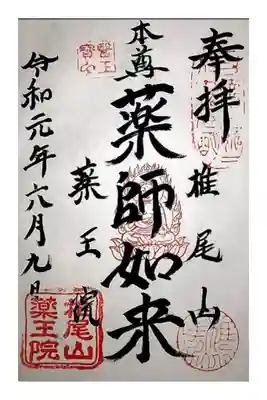 奉拝
椎尾山
本尊
薬師如来
薬王院
令和元年六月九日
椎尾山
薬王院